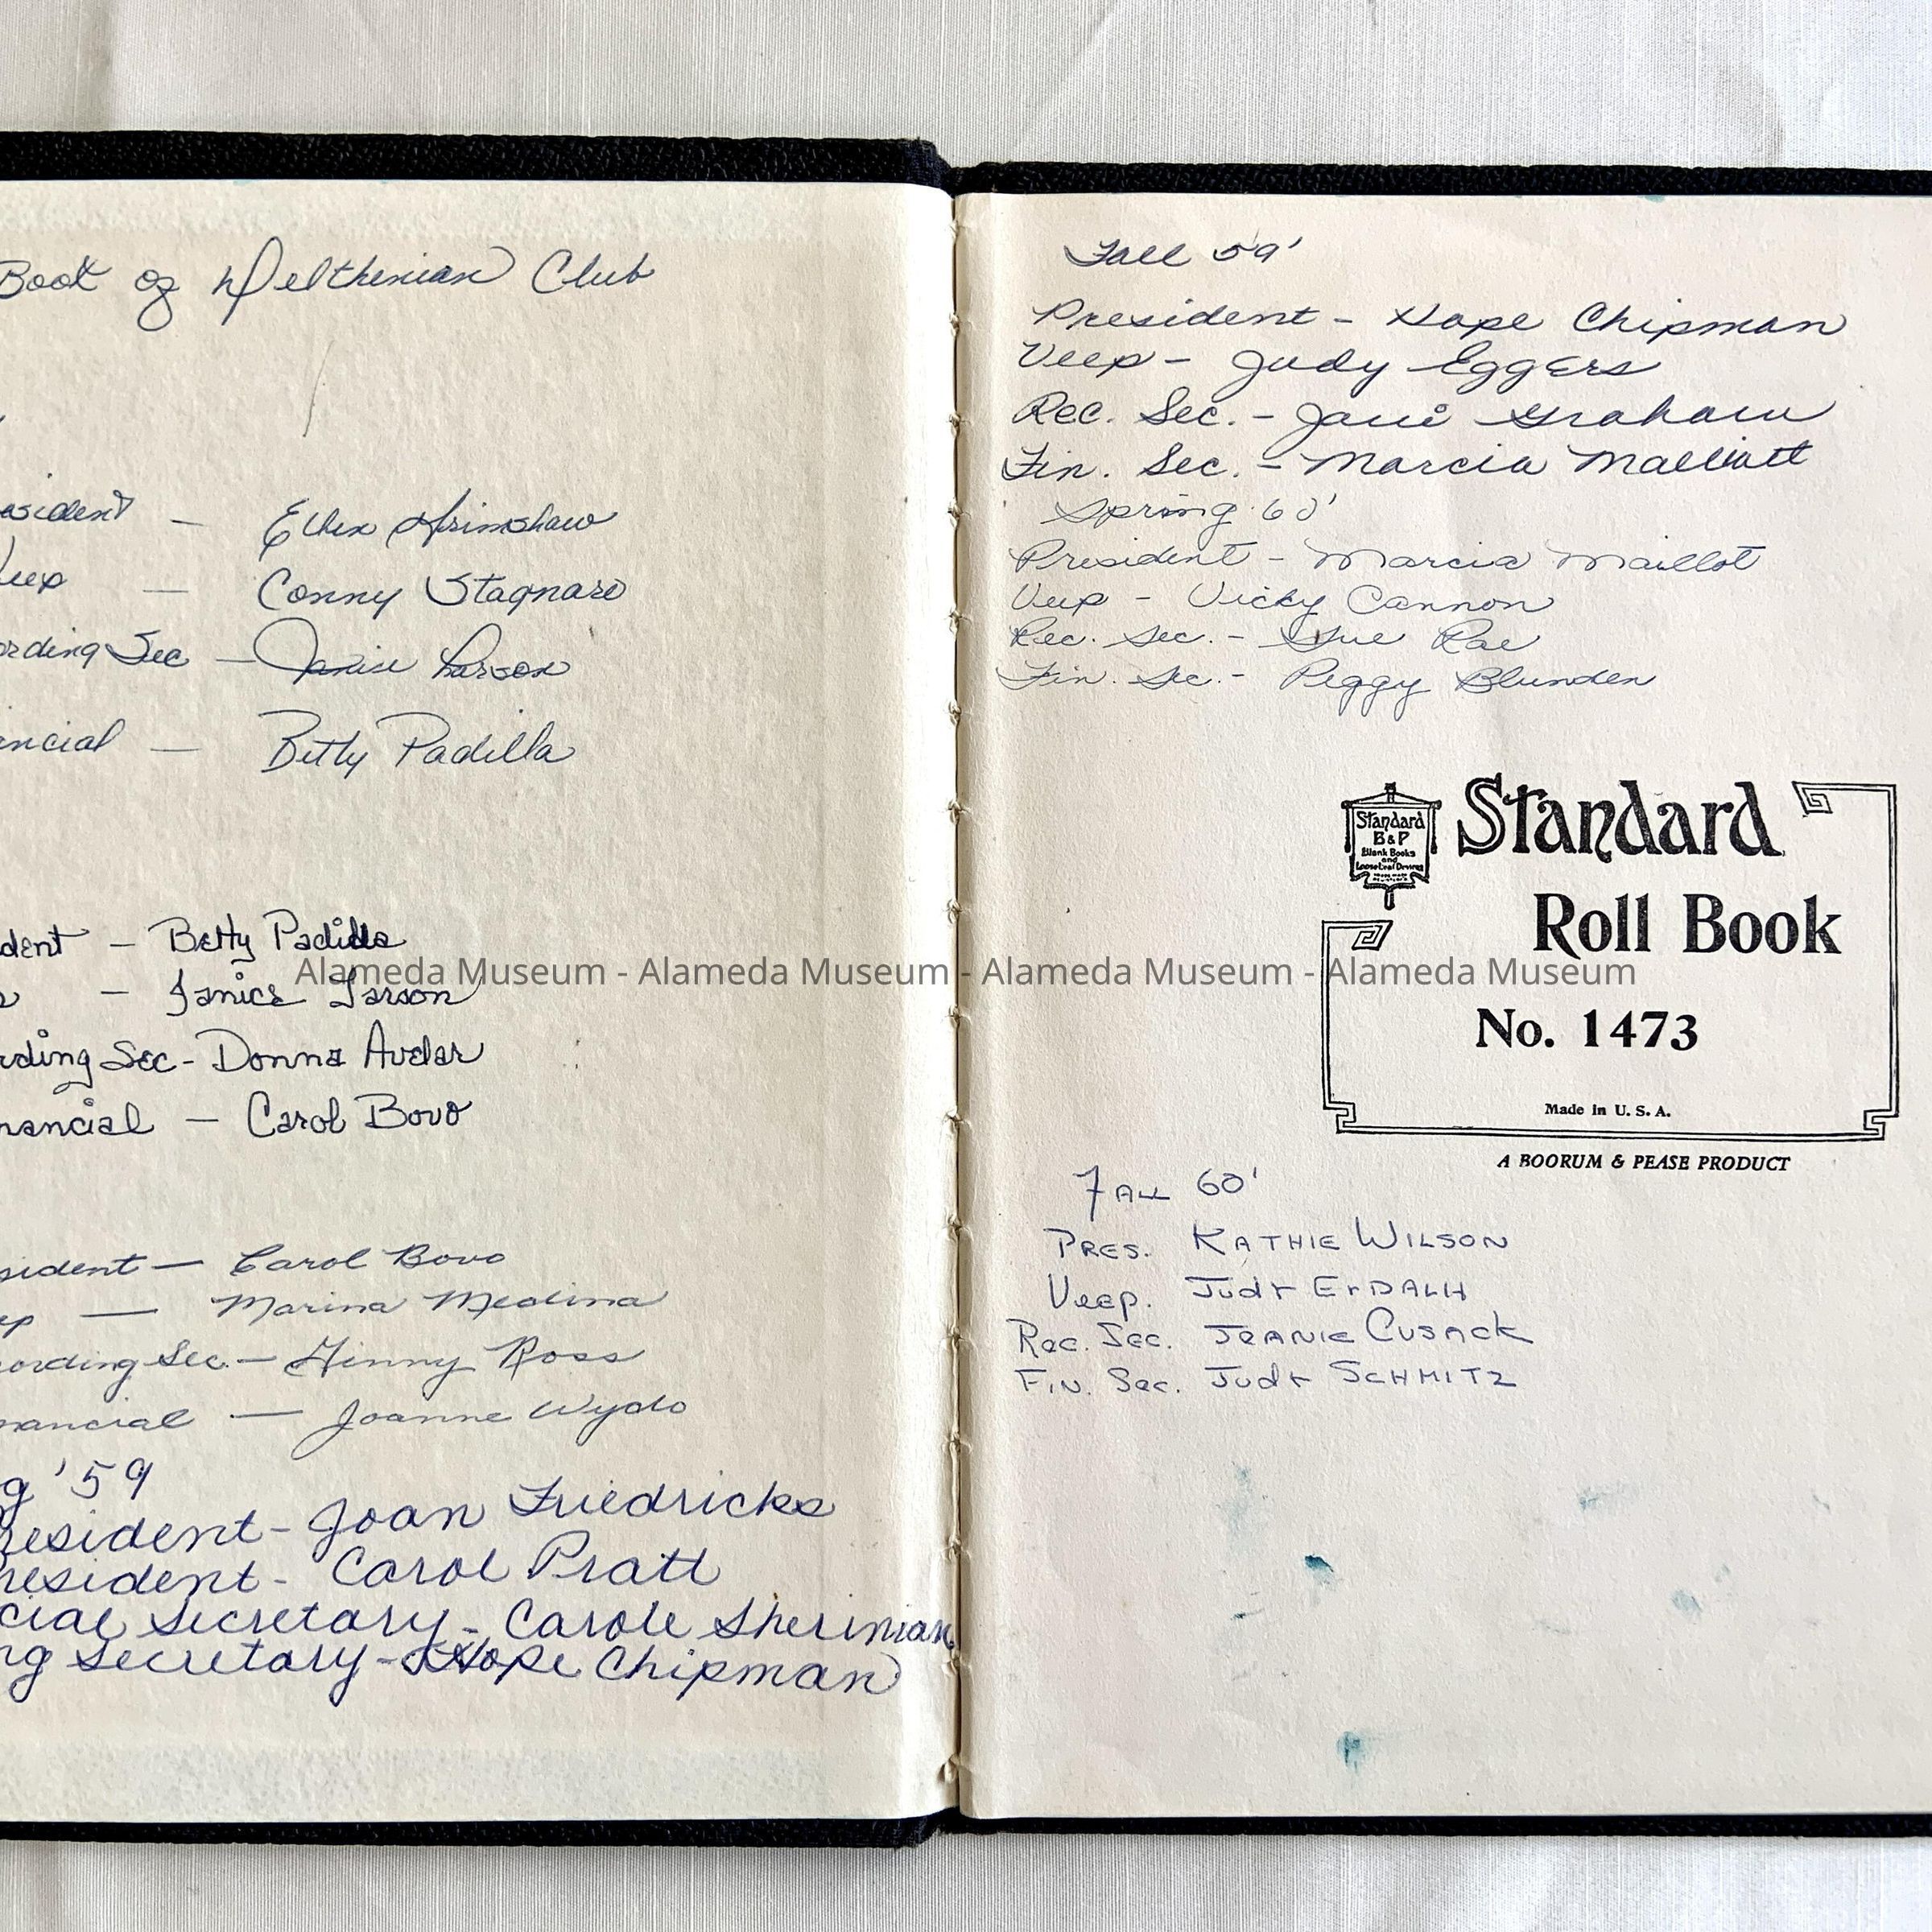 Book of Delthenian Club
esident — Ellen Grimshaw
Veep — Conny Stagnaro
ording Sec — Janice Larson
ancial — Betty Padilla
dent — Betty Padilla
— Janice Larson
rding Sec - Donna Avelar
nancial — Carol Bovo
sident — Carol Bovo
ep — Marina Medina
cording Sec. — Ginny Ross
nancial — Joanne Wydo
g '59
resident - Joan Friedricks
resident - Carol Pratt
cial Secretary - Carole Sherinian
ng Secretary - Hope Chipman
Fall 59'
President - Hope Chipman
Veep - Judy Eggers
Rec. Sec. - Jani Graham
Fin. Sec. - Marcia
Spring 60'
President - Marcia Maillot
Veep - Vicky Cannon
Rec. Sec. - Sue Rae
Fin. Sec. - Peggy Blunden
Standard
B & P
Blank Books
and
Loose Leaf Devices
Standard
Roll Book
No. 1473
Made in U. S. A.
A BOORUM & PEASE PRODUCT
Fall 60'
Pres. Kathie Wilson
Veep. Judy
Rec. Sec. Jeanie Cusack
Fin. Sec. Judy Schmitz
Alameda Museum - Alameda Museum - Alameda Museum - Alameda Museum